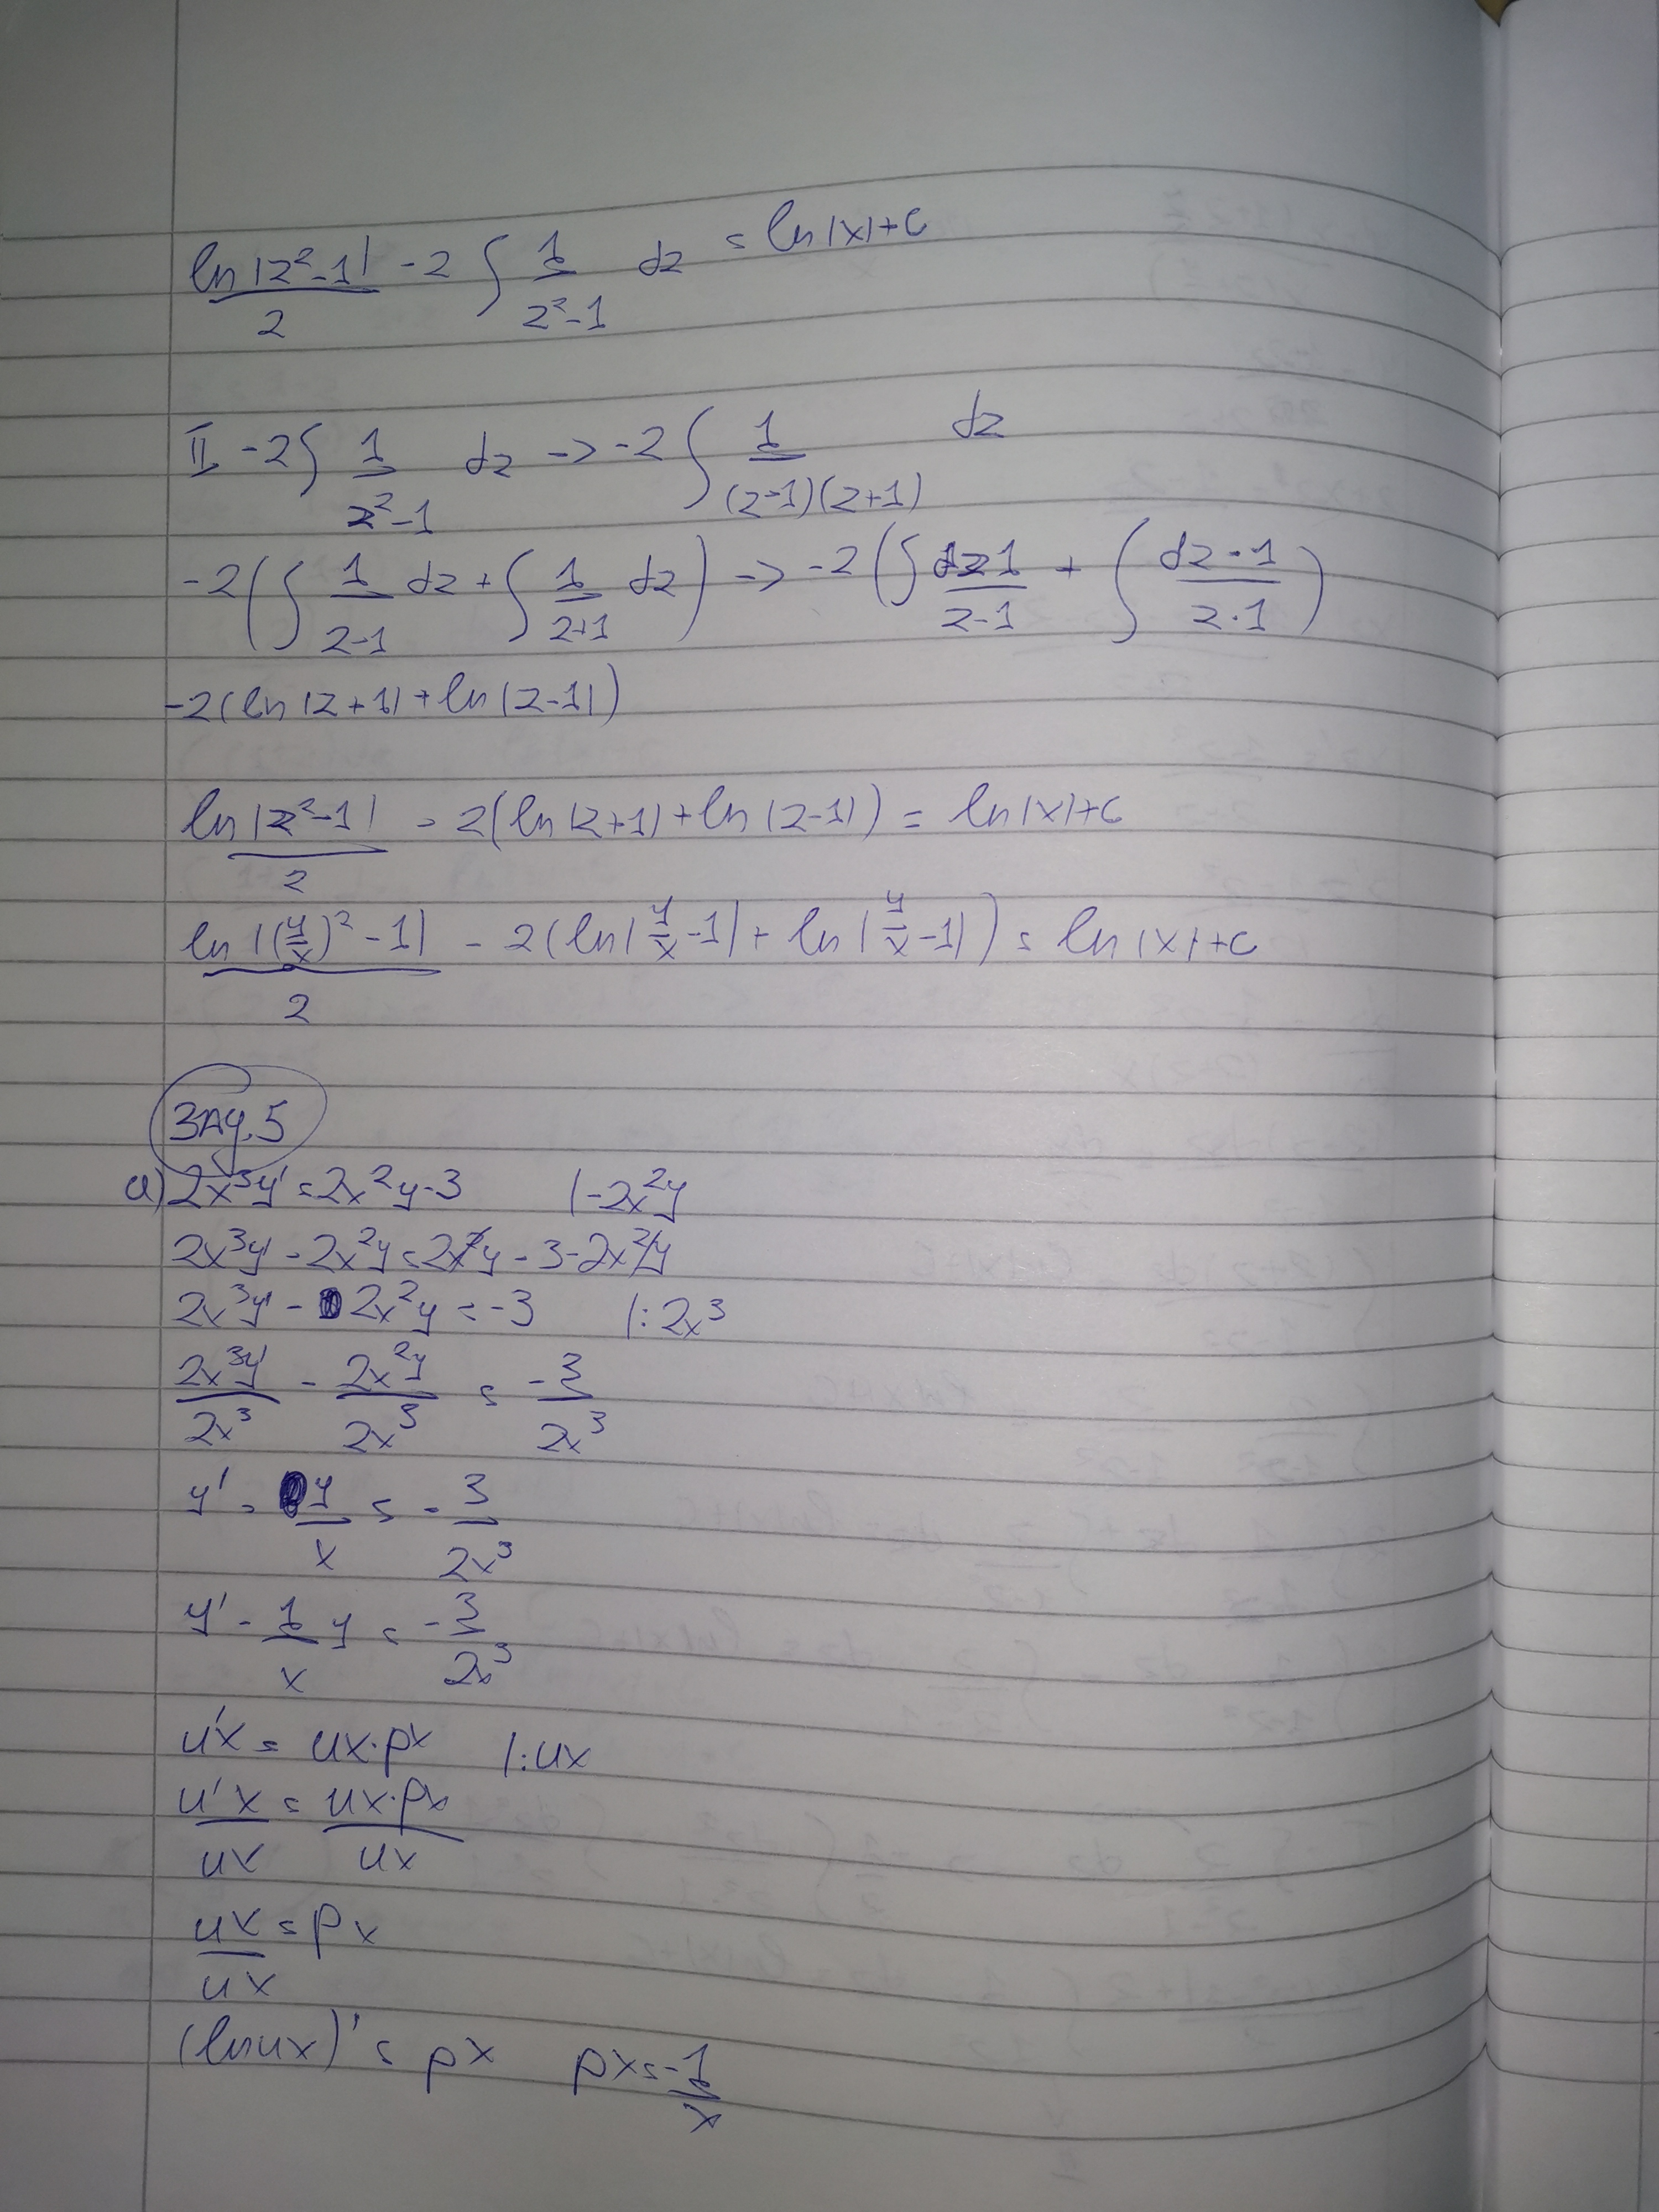 ln|z²-1|/2 - 2∫ 1/(z²-1) dz = ln|x|+c
II -2∫ 1/(z²-1) dz -> -2∫ 1/((z-1)(z+1)) dz
-2(∫ 1/(z-1) dz + ∫ 1/(z+1) dz) -> -2(∫ dz·1/(z-1) + ∫ dz·1/(z·1))
-2(ln|z+1| + ln|z-1|)
ln|z²-1|/2 - 2(ln|z+1| + ln|z-1|) = ln|x|+c
ln|(y/x)²-1|/2 - 2(ln|y/x-1| + ln|y/x-1|) = ln|x|+c
ЗАД.5
а) 2x³y' = 2x²y-3 |-2x²y
2x³y' - 2x²y = 2x²y - 3 - 2x²y
2x³y' - 2x²y = -3 |:2x³
2x³y'/2x³ - 2x²y/2x³ = -3/2x³
y' - y/x = -3/2x³
y' - 1/x y = -3/2x³
u'x = ux·px |:ux
u'x/ux = ux·px/ux
ux/ux = px
(lnux)' = px px = -1/x